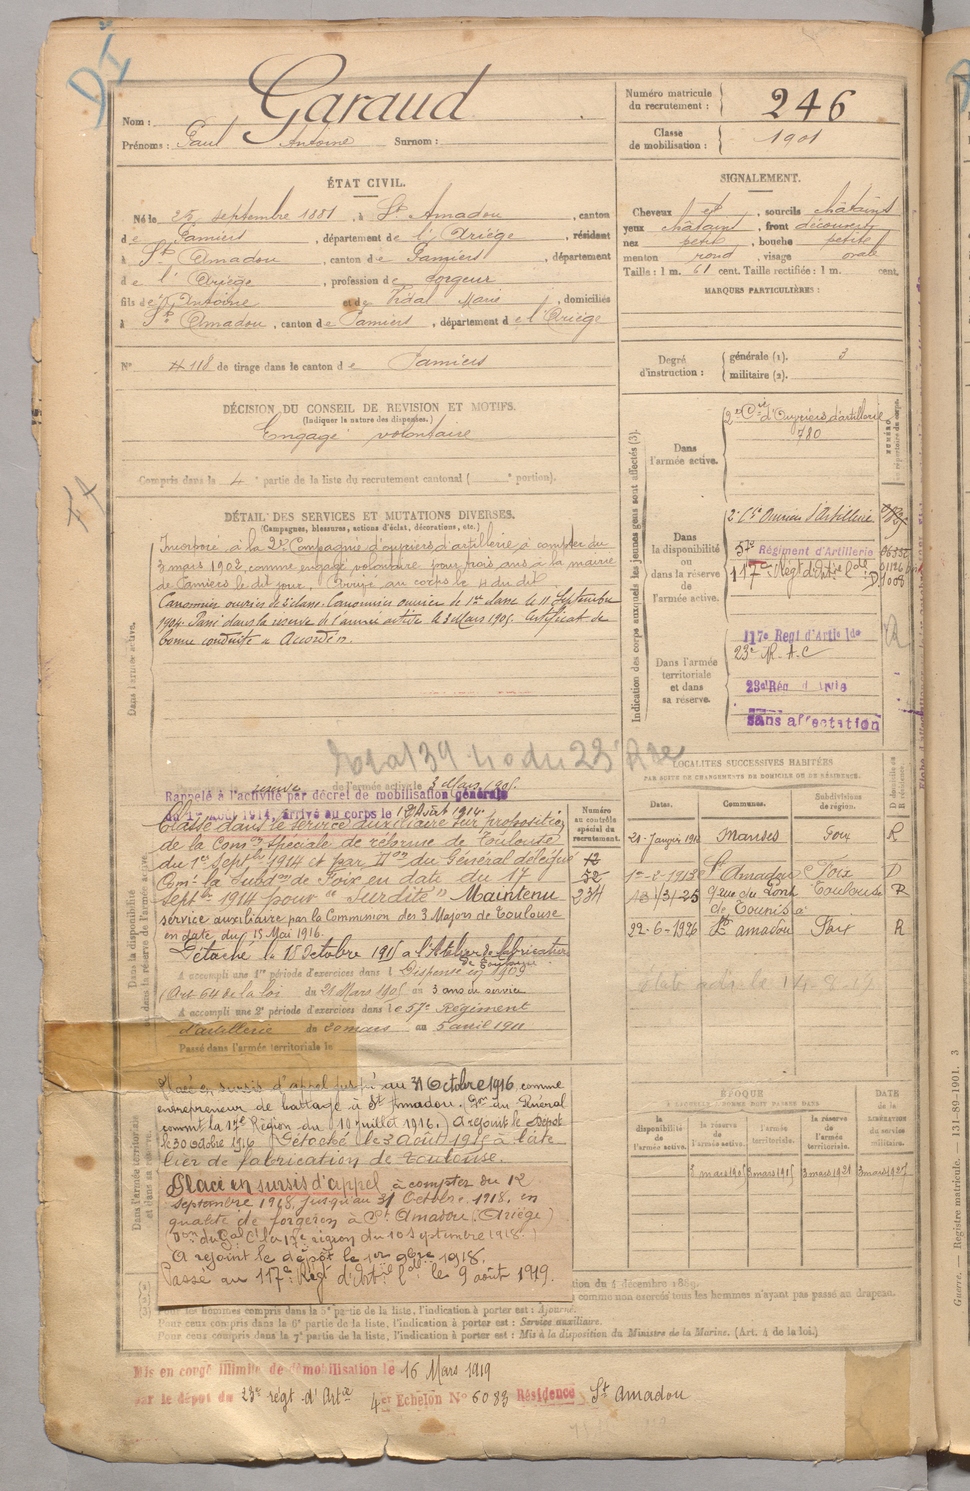 D I
Nom : Garaud
Prénoms : Paul Antoine Surnom :
Numéro matricule du recrutement : 246
Classe de mobilisation : 1901
ÉTAT CIVIL.
Né le 25 septembre 1881, à St Amadou, canton
de Pamiers, département de l'Ariège, résidant
à St Amadou, canton de Pamiers, département
de l'Ariège, profession de forgeur
fils de Antoine et de Vidal Marie, domiciliés
à St Amadou, canton de Pamiers, département de l'Ariège
N° 118 de tirage dans le canton de Pamiers
SIGNALEMENT.
Cheveux, sourcils châtains
yeux châtains, front découvert
nez petit, bouche petite
menton rond, visage ovale
Taille : 1 m. 61 cent. Taille rectifiée : 1 m. cent.
MARQUES PARTICULIÈRES :
Degré d'instruction : générale (1). 3
militaire (2).
DÉCISION DU CONSEIL DE REVISION ET MOTIFS.
(Indiquer la nature des dispenses.)
Engagé volontaire
Compris dans la 4e partie de la liste du recrutement cantonal ( e portion).
DÉTAIL DES SERVICES ET MUTATIONS DIVERSES.
(Campagnes, blessures, actions d'éclat, décorations, etc.)
Dans l'armée active.
Incorporé à la 2e Compagnie d'ouvriers d'artillerie, à compter du
3 mars 1902, comme engagé volontaire pour trois ans à la mairie
de Pamiers le dit jour. Arrivé au corps le 4 du dit.
Canonnier ouvrier de 2e classe. Canonnier ouvrier de 1re classe le 11 Septembre
1904. Passé dans la réserve de l'armée active le 3 Mars 1905. Certificat de
bonne conduite "Accordé".
Indication des corps auxquels les jeunes gens sont affectés (3).
Dans l'armée active.
2e Cie d'Ouvriers d'artillerie
780
Dans la disponibilité ou dans la réserve de l'armée active.
2e Cie Ouvriers d'Artillerie
57e Régiment d'Artillerie
117e Régt d'Art. lde
Dans l'armée territoriale et dans sa réserve.
117e Regt d'Artie lde
23e R.A.C
23e Rég d'Artie
Sans affectation
de l'armée active le 3 Mars 1905
Rappelé à l'activité par décret de mobilisation générale
du 1er Août 1914, arrivé au corps le Août 1914.
Classé dans le service auxiliaire sur proposition
de la Comon spéciale de réforme de Toulouse
du 1er Septbre 1914 et par Don du Général délégué
Comt la Subdon de Foix en date du 17
Septbre 1914 pour "surdité" Maintenu
service auxiliaire par la Commission des 3 Majors de Toulouse
en date du 15 Mai 1916.
Détaché le 15 Octobre 1915 à l'Atelier de fabrication
de Toulouse
A accompli une 1re période d'exercices dans l Dispensé en 1909
(Art 64 de la loi du 21 Mars 1905 3 ans de service
A accompli une 2e période d'exercices dans le 57e Régiment
d'artillerie du 20 mars au 5 avril 1911
Passé dans l'armée territoriale le
Numéro au contrôle spécial du recrutement.
12
52
234
LOCALITÉS SUCCESSIVES HABITÉES
PAR SUITE DE CHANGEMENTS DE DOMICILE OU DE RÉSIDENCE.
Dates. Communes. Subdivisions de région. D domicile ou R résidence.
Foix R
1er-2-1913 St Amadou Foix D
13/3/25 9 rue du Pont de Tounis à Toulouse R
22-6-1926 St Amadou Foix R
Placé en sursis d'appel jusqu'au 31 Octobre 1916 comme
entrepreneur de battage à St Amadou. Don du Général
commt la 17e Région du 10 juillet 1916. A rejoint le Dépôt
le 30 octobre 1916. Détaché le 3 août 1918 à l'ate
lier de fabrication de Toulouse.
Placé en sursis d'appel à compter du 12
Septembre 1918, jusqu'au 31 Octobre 1918, en
qualité de forgeron à St Amadou (Ariège)
(Don du Gal Ct la 17e région du 10 Septembre 1918.)
A rejoint le dépôt le 1er 9bre 1918.
Passé au 117e Régt d'Artie lde le 9 août 1919.
ÉPOQUE
À LAQUELLE L'HOMME DOIT PASSER DANS
la disponibilité de l'armée active.
la réserve de l'armée active.
l'armée territoriale.
la réserve de l'armée territoriale.
DATE de la LIBÉRATION du service militaire.
3 mars 1905 3 mars 1915 3 mars 1921 3 mars 1927
tion du 4 décembre 1889.
comme non exercés tous les hommes n'ayant pas passé au drapeau.
Pour les hommes compris dans la 5e partie de la liste, l'indication à porter est : Ajourné.
Pour ceux compris dans la 6e partie de la liste, l'indication à porter est : Service auxiliaire.
Pour ceux compris dans la 7e partie de la liste, l'indication à porter est : Mis à la disposition du Ministre de la Marine. (Art. 4 de la loi.)
Mis en congé illimité de démobilisation le 16 Mars 1919
par le dépôt du 23e régt d'Artie 4e Echelon N° 6083 Résidence St Amadou
Guerre. — Registre matricule. — 131-89-1901. 3